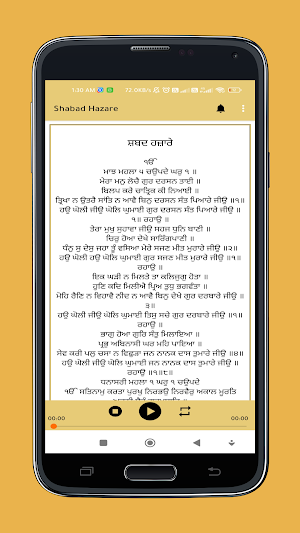 1:30 AM
72.0KB/s
Shabad Hazare
ਸ਼ਬਦ ਹਜ਼ਾਰੇ
ੴ
ਮਾਝ ਮਹਲਾ ੫ ਚਉਪਦੇ ਘਰੁ ੧ ॥
ਮੇਰਾ ਮਨੁ ਲੋਚੈ ਗੁਰ ਦਰਸਨ ਤਾਈ ॥
ਬਿਲਪ ਕਰੇ ਚਾਤ੍ਰਿਕ ਕੀ ਨਿਆਈ ॥
ਤ੍ਰਿਖਾ ਨ ਉਤਰੈ ਸਾਂਤਿ ਨ ਆਵੈ ਬਿਨੁ ਦਰਸਨ ਸੰਤ ਪਿਆਰੇ ਜੀਉ ॥੧॥
ਹਉ ਘੋਲੀ ਜੀਉ ਘੋਲਿ ਘੁਮਾਈ ਗੁਰ ਦਰਸਨ ਸੰਤ ਪਿਆਰੇ ਜੀਉ ॥੧॥
ਰਹਾਉ ॥
ਤੇਰਾ ਮੁਖੁ ਸੁਹਾਵਾ ਜੀਉ ਸਹਜ ਧੁਨਿ ਬਾਣੀ ॥
ਚਿਰੁ ਹੋਆ ਦੇਖੇ ਸਾਰਿੰਗਪਾਣੀ ॥
ਧੰਨੁ ਸੁ ਦੇਸੁ ਜਹਾ ਤੂੰ ਵਸਿਆ ਮੇਰੇ ਸਜਣ ਮੀਤ ਮੁਰਾਰੇ ਜੀਉ ॥੨॥
ਹਉ ਘੋਲੀ ਹਉ ਘੋਲਿ ਘੁਮਾਈ ਗੁਰ ਸਜਣ ਮੀਤ ਮੁਰਾਰੇ ਜੀਉ ॥੧॥
ਰਹਾਉ ॥
ਇਕ ਘੜੀ ਨ ਮਿਲਤੇ ਤਾ ਕਲਿਜੁਗੁ ਹੋਤਾ ॥
ਹੁਣਿ ਕਦਿ ਮਿਲੀਐ ਪ੍ਰਿਅ ਤੁਧੁ ਭਗਵੰਤਾ ॥
ਮੋਹਿ ਰੈਣਿ ਨ ਵਿਹਾਵੈ ਨੀਦ ਨ ਆਵੈ ਬਿਨੁ ਦੇਖੇ ਗੁਰ ਦਰਬਾਰੇ ਜੀਉ ॥
੩॥
ਹਉ ਘੋਲੀ ਜੀਉ ਘੋਲਿ ਘੁਮਾਈ ਤਿਸੁ ਸਚੇ ਗੁਰ ਦਰਬਾਰੇ ਜੀਉ ॥੧॥
ਰਹਾਉ ॥
ਭਾਗੁ ਹੋਆ ਗੁਰਿ ਸੰਤੁ ਮਿਲਾਇਆ ॥
ਪ੍ਰਭੁ ਅਬਿਨਾਸੀ ਘਰ ਮਹਿ ਪਾਇਆ ॥
ਸੇਵ ਕਰੀ ਪਲੁ ਚਸਾ ਨ ਵਿਛੁੜਾ ਜਨ ਨਾਨਕ ਦਾਸ ਤੁਮਾਰੇ ਜੀਉ ॥੪॥
ਹਉ ਘੋਲੀ ਜੀਉ ਘੋਲਿ ਘੁਮਾਈ ਜਨ ਨਾਨਕ ਦਾਸ ਤੁਮਾਰੇ ਜੀਉ ॥
ਰਹਾਉ ॥੧॥੮॥
ਧਨਾਸਰੀ ਮਹਲਾ ੧ ਘਰੁ ੧ ਚਉਪਦੇ
ੴ ਸਤਿਨਾਮੁ ਕਰਤਾ ਪੁਰਖੁ ਨਿਰਭਉ ਨਿਰਵੈਰੁ ਅਕਾਲ ਮੂਰਤਿ
00:00
00:00